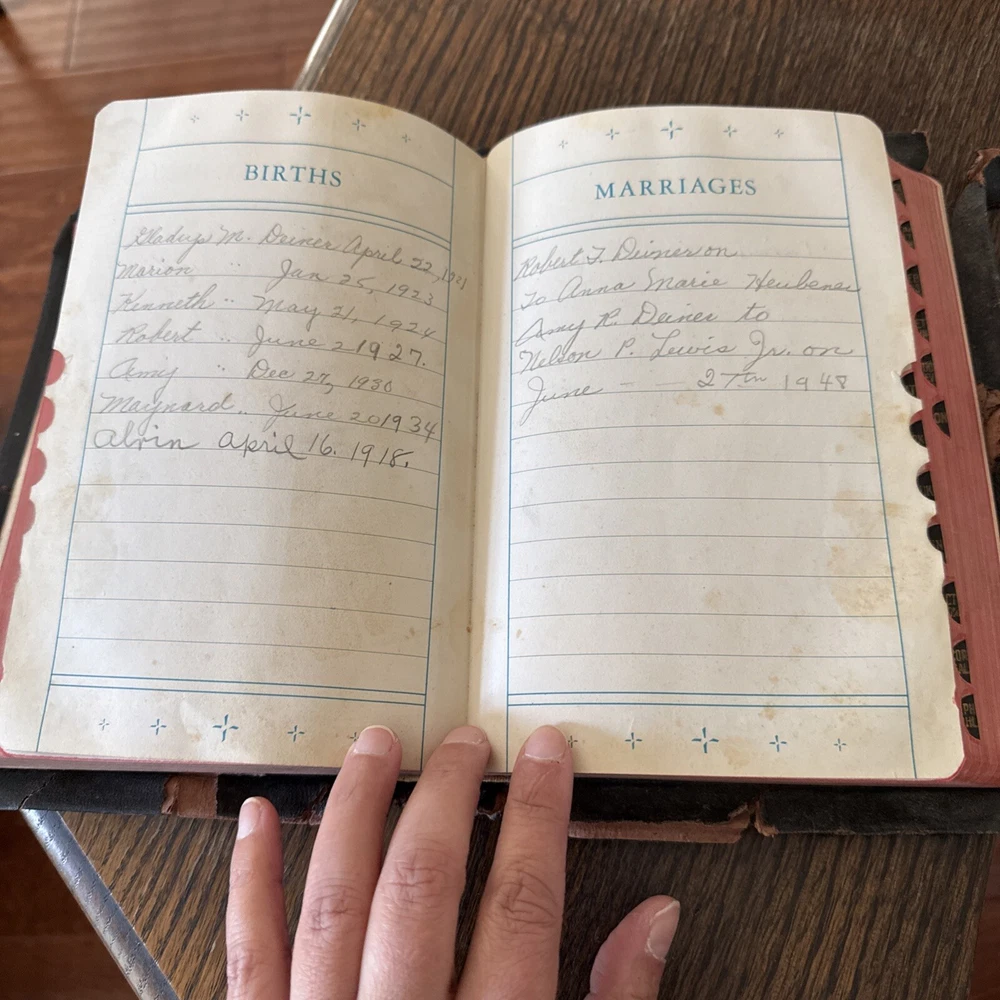 BIRTHS
Gladys M. Deiner April 22, 1921
Marion " Jan 25, 1923
Kenneth " May 21, 1924
Robert " June 2 1927.
Amy " Dec 27, 1930
Maynard " June 20 1934
Alvin April 16. 1918.
MARRIAGES
Robert F. Deiner on
To Anna Marie Heubener
Amy R. Deiner to
Nelson P. Lewis Jr. on
June - - 27th 1948